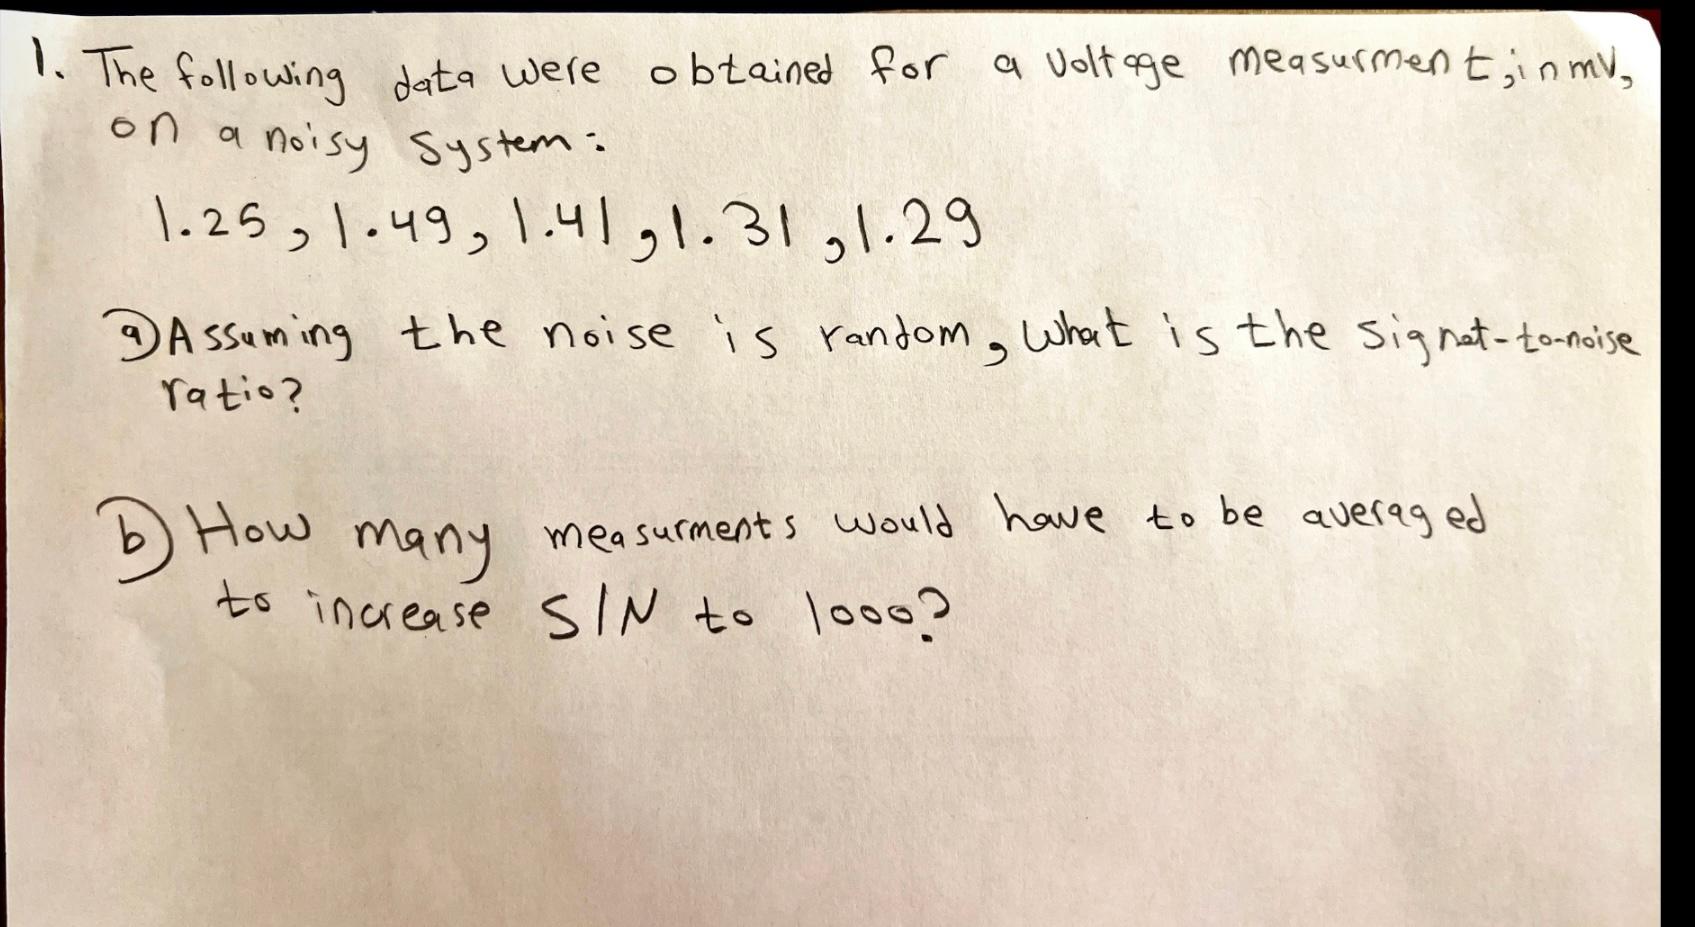 1. The following data were obtained for a voltage measurment, in mV,
on a noisy system:
1.25, 1.49, 1.41, 1.31, 1.29
a) Assuming the noise is random, what is the signal-to-noise
ratio?
b) How many measurments would have to be averaged
to increase S/N to 1000?